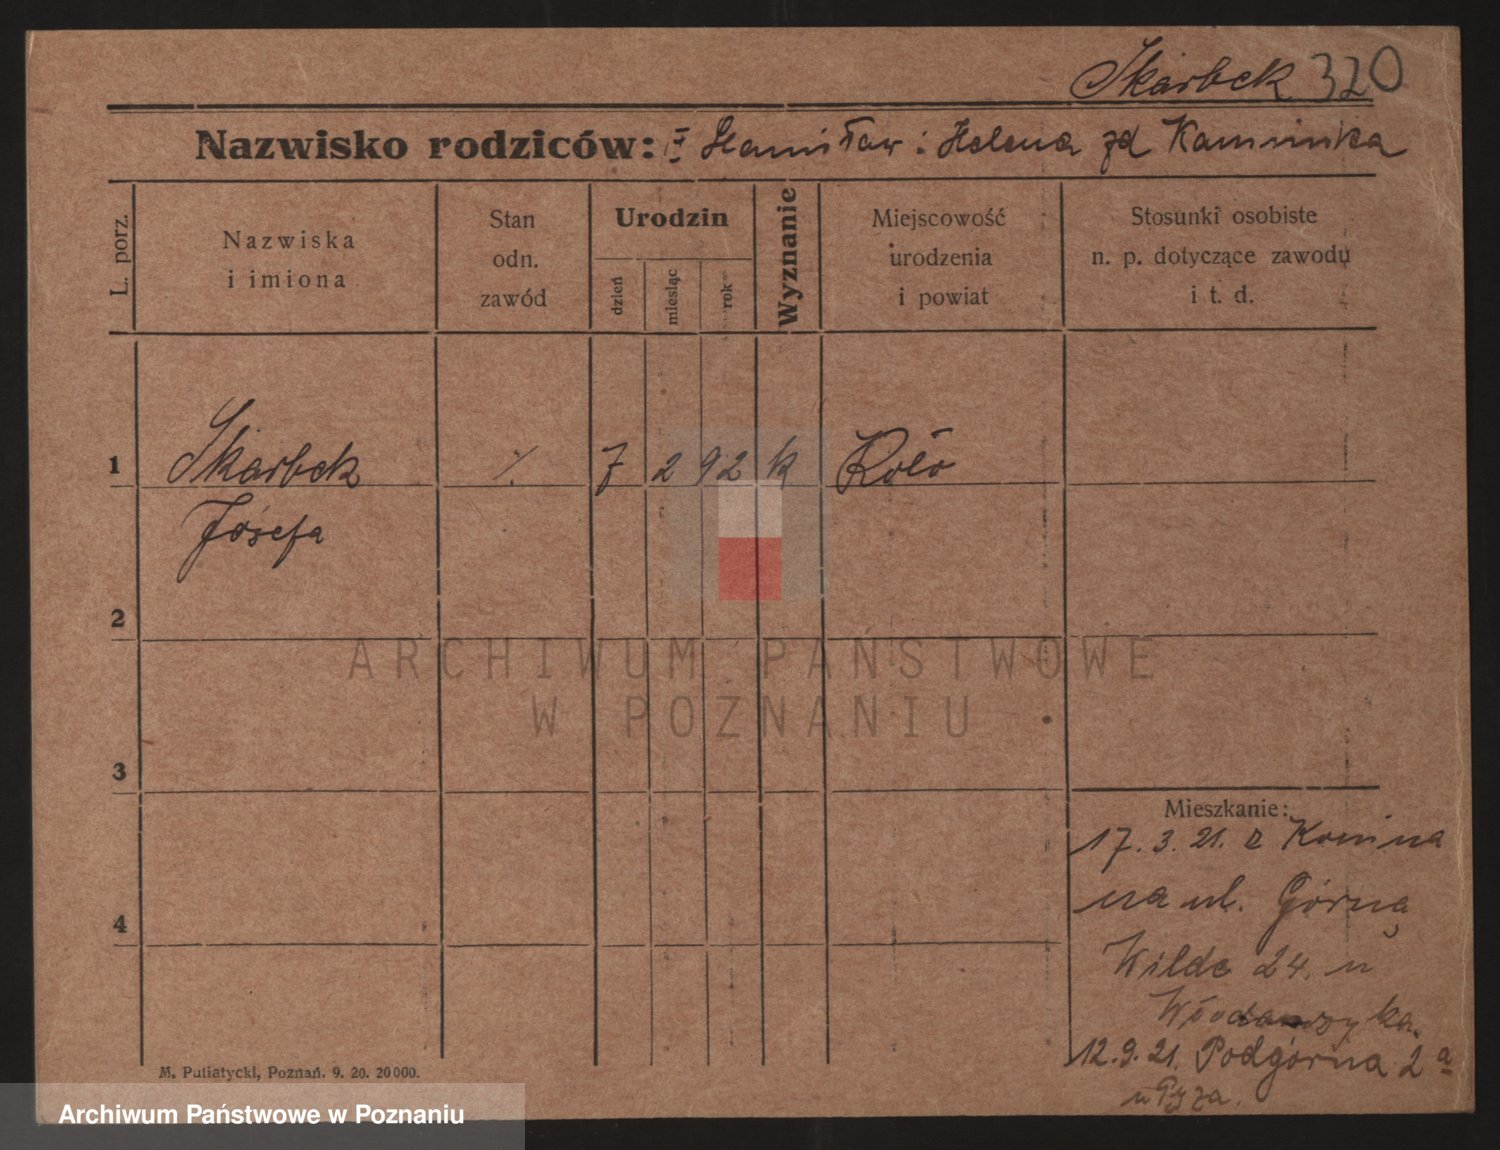 Skarbek 320
Nazwisko rodziców: Stanisław i Helena zd Kaminska
L. porz.
Nazwiska
i imiona
Stan
odn.
zawód
Urodzin
dzień
miesiąc
rok
Wyznanie
Miejscowość
urodzenia
i powiat
Stosunki osobiste
n. p. dotyczące zawodu
i t. d.
1 Skarbek % 7 2 92 k Koło
Józefa
2
3
4
Mieszkanie:
17.3.21. z Konina
na ul. Górną
Wilde 24. u
12.9.21. Podgórna 2a
u
M. Putiatycki, Poznań. 9. 20. 20000.
ARCHIWUM PAŃSTWOWE
W POZNANIU
Archiwum Państwowe w Poznaniu